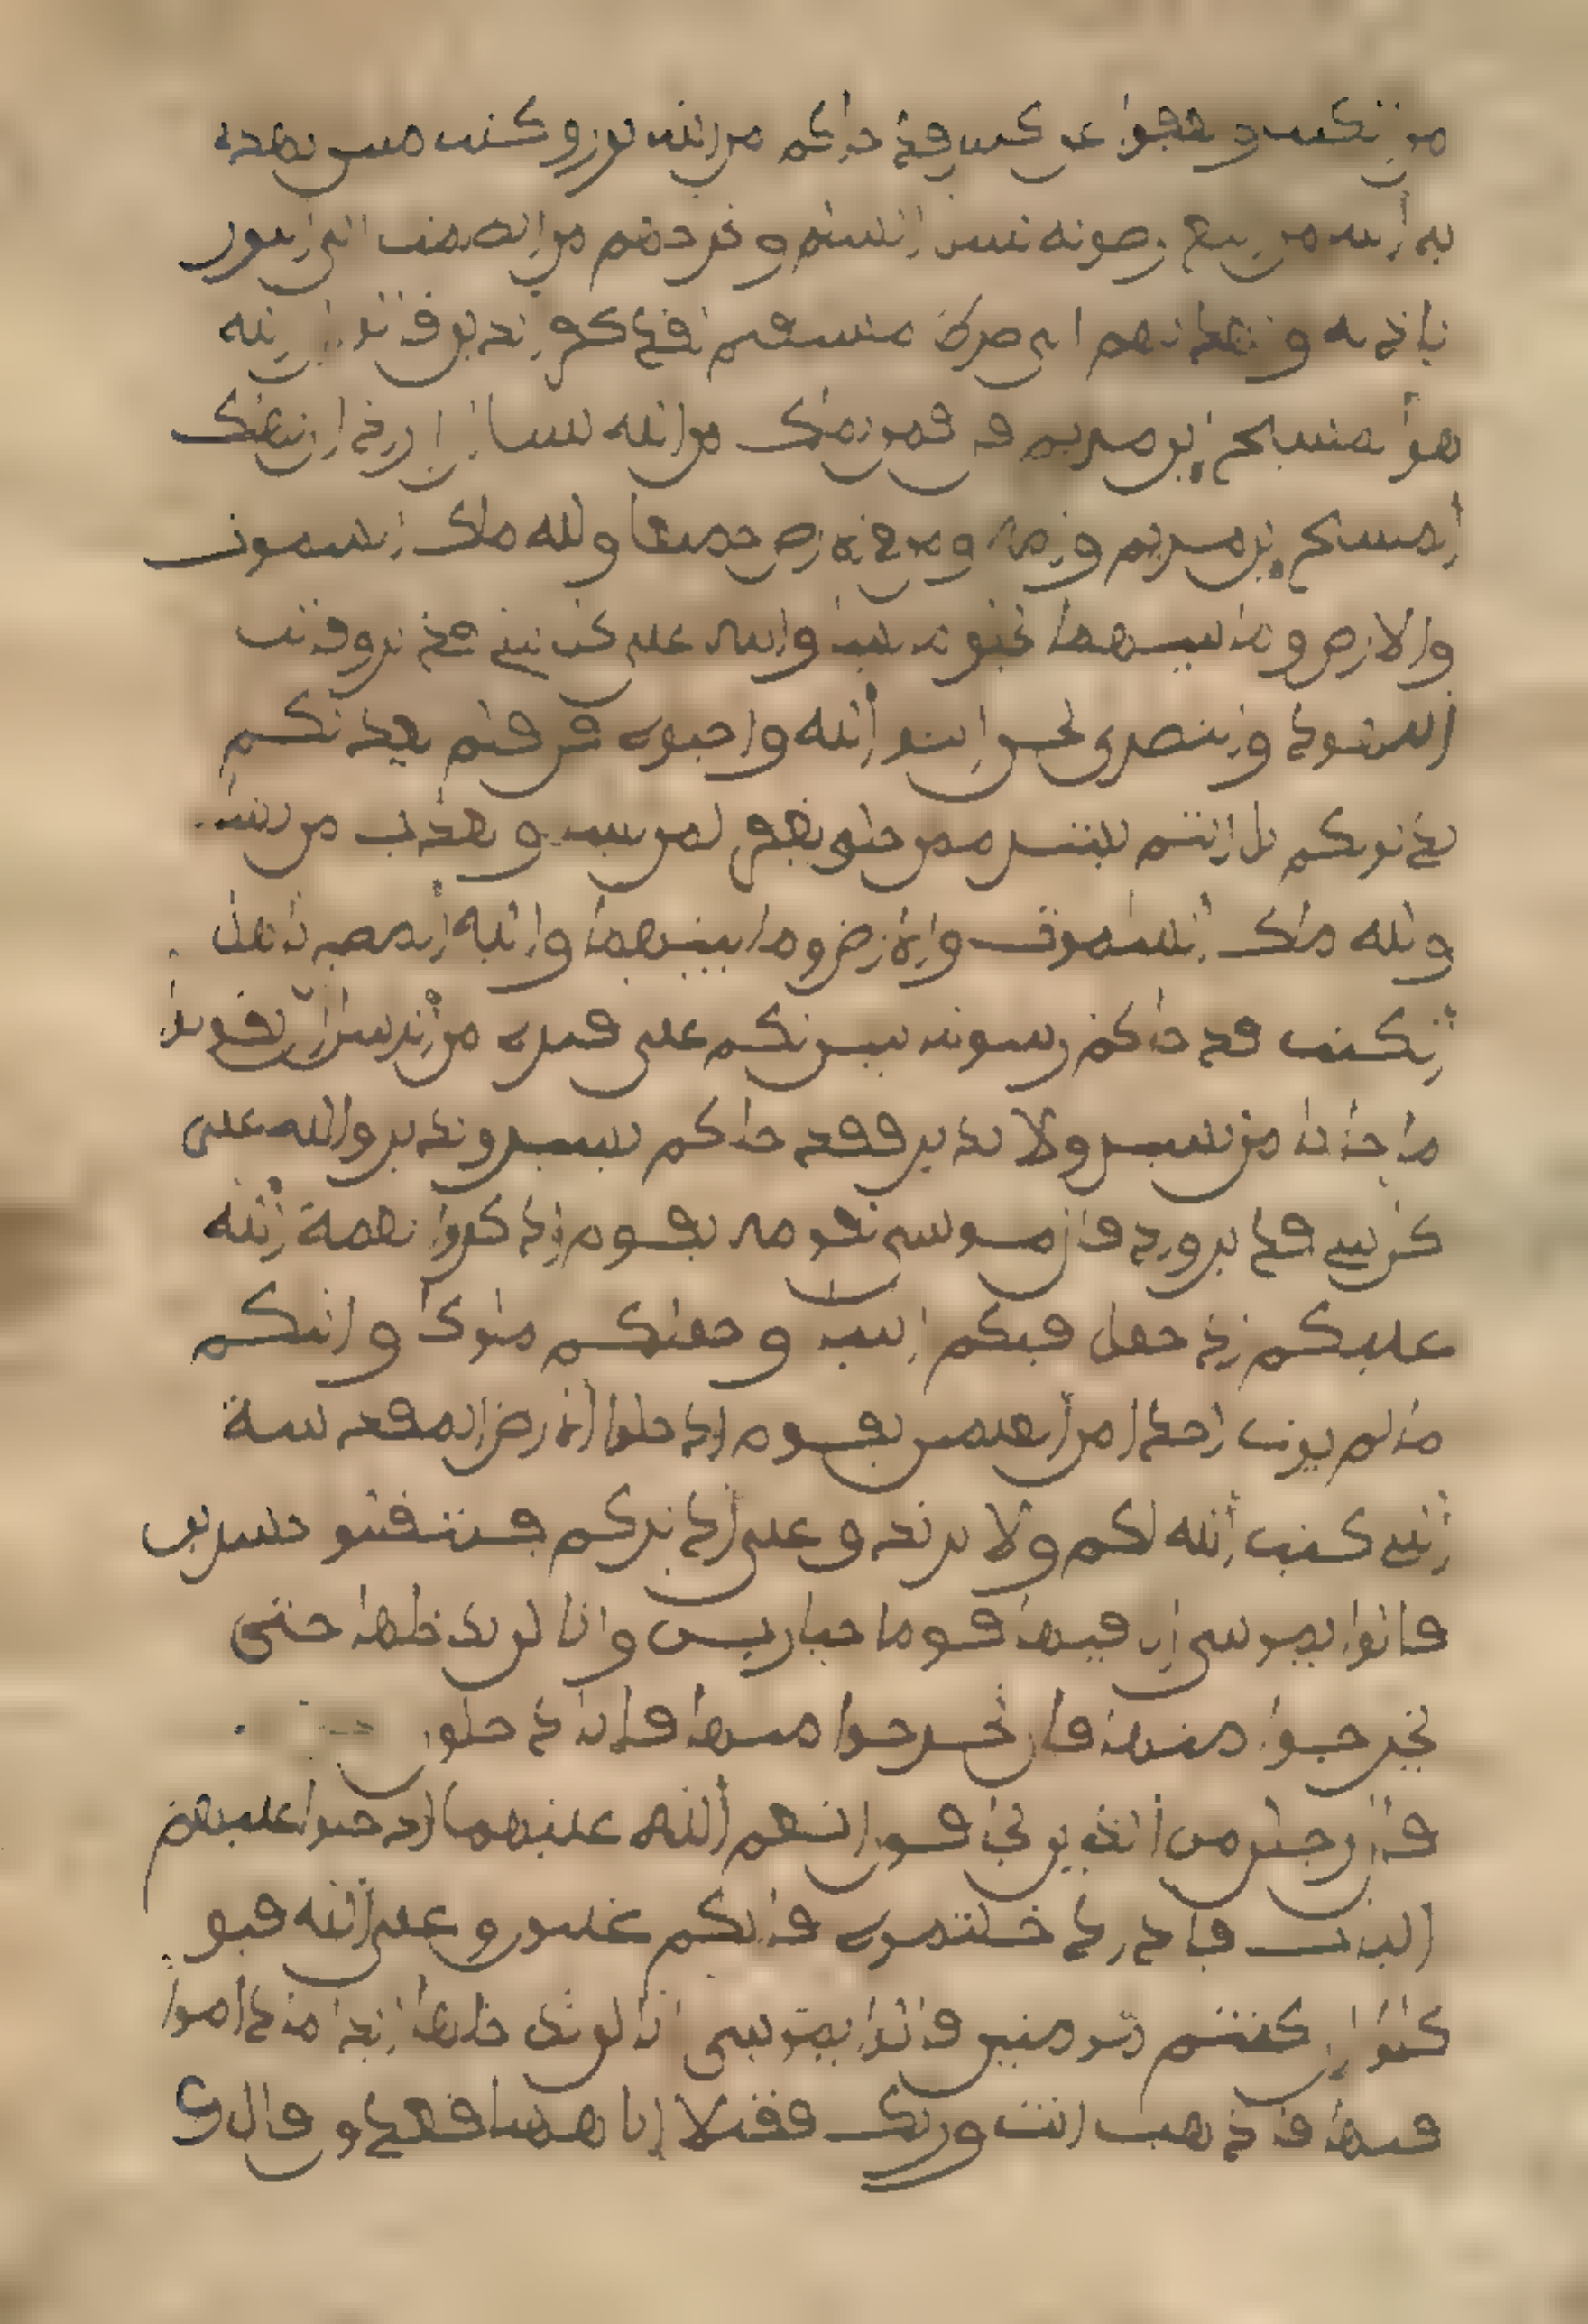 من الكتب ويعفوا عن كثير قد جاكم من الله نور وكتب مبين يهدى
به الله من اتبع رضونه سبل السلم ويخرجهم من الظلمت الى النور
باذنه ويهديهم الى صرط مستقيم لقد كفر الذين قالوا ان الله
هو المسيح ابن مريم قل فمن يملك من الله شيا ان اراد ان يهلك
المسيح ابن مريم وامه ومن في الارض جميعا ولله ملك السموت
والارض وما بينهما يخلق ما يشا والله على كل شي قدير وقالت
اليهود والنصرى نحن ابنوا الله واحبوه قل فلم يعذبكم
بذنوبكم بل انتم بشر ممن خلق يغفر لمن يشا ويعذب من يشا
ولله ملك السموت والارض وما بينهما واليه المصير ياهل
الكتب قد جاكم رسولنا يبين لكم على فترة من الرسل ان تقولوا
ما جانا من بشير ولا نذير فقد جاكم بشير ونذير والله على
كل شي قدير واذ قال موسى لقومه يقوم اذكروا نعمة الله
عليكم اذ جعل فيكم انبيا وجعلكم ملوكا واتيكم
ما لم يوت احدا من العلمين يقوم ادخلوا الارض المقدسة
التي كتب الله لكم ولا ترتدوا على ادبركم فتنقلبوا خسرين
قالوا يموسى ان فيها قوما جبارين وانا لن ندخلها حتى
يخرجوا منها فان يخرجوا منها فانا دخلون
قال رجلن من الذين يخافون انعم الله عليهما ادخلوا عليهم
الباب فاذا دخلتموه فانكم غلبون وعلى الله فتو
كلوا ان كنتم مومنين قالوا يموسى انا لن ندخلها ابدا ما داموا
فيها فاذهب انت وربك فقتلا انا ههنا قعدون قال